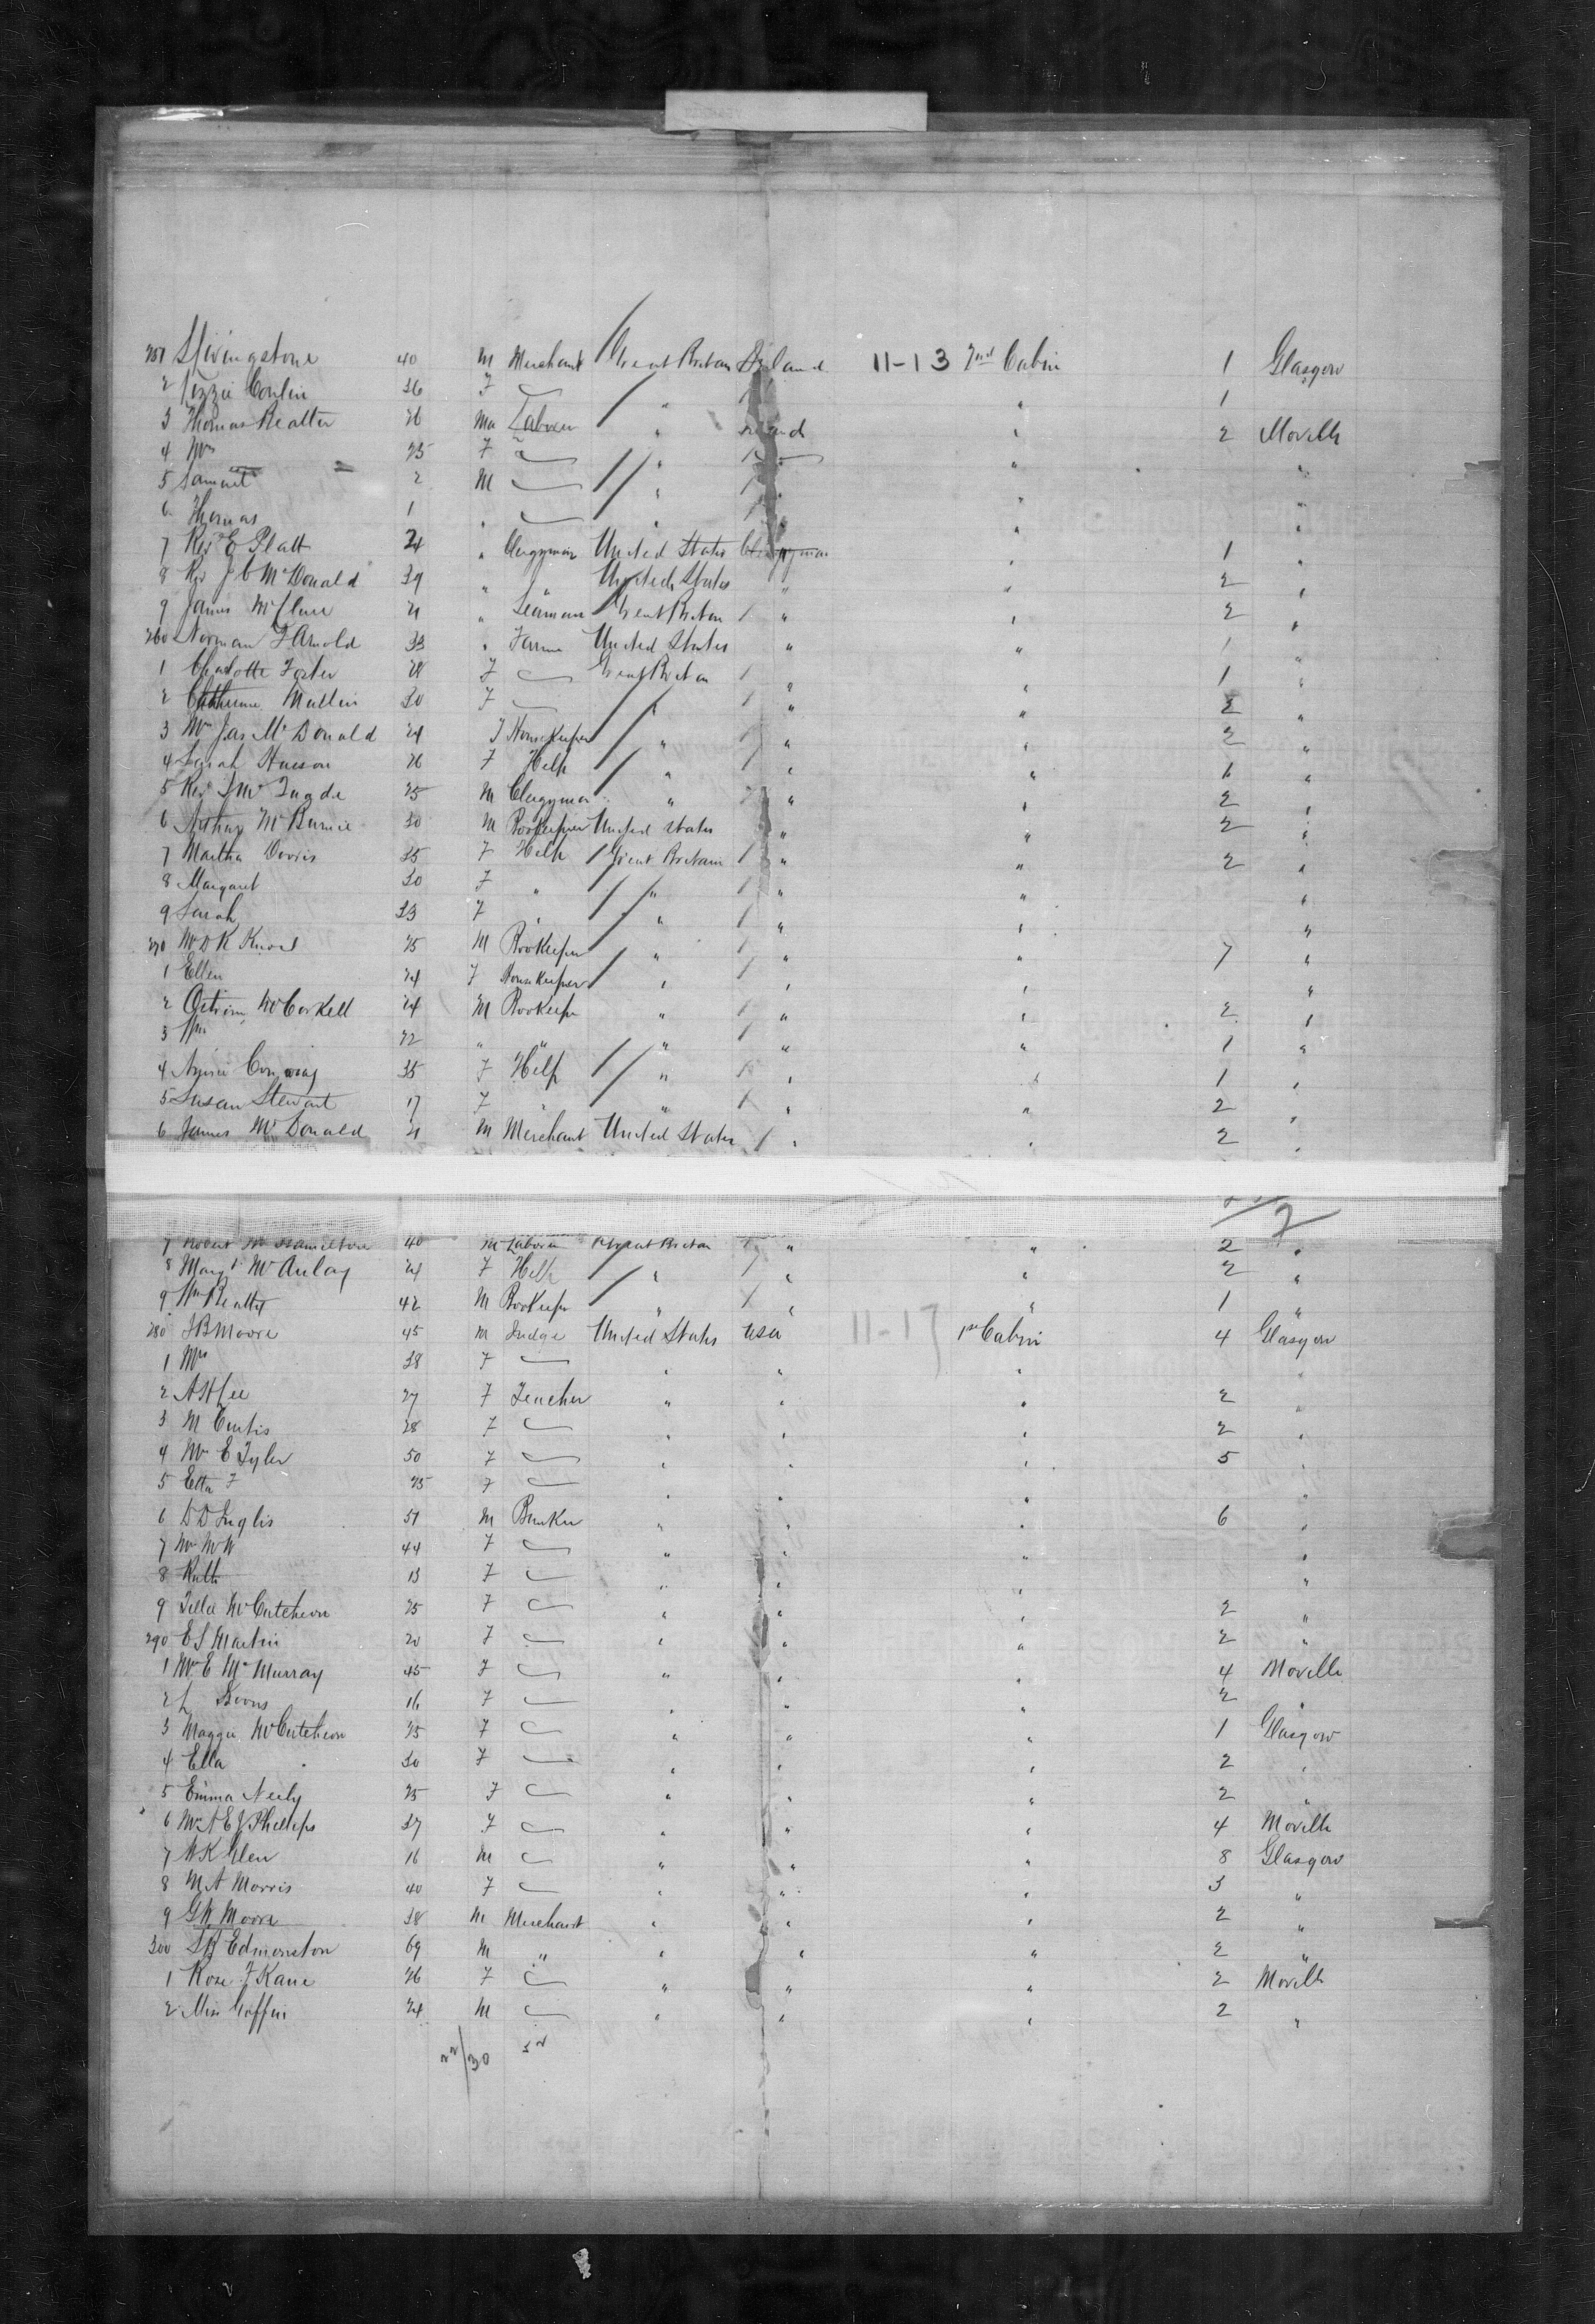 251 Livingstone 40 M Merchant Great Britain 11-13 2nd Cabin 1 Glasgow
2 Lizzie Conlin 36 F " " 1
3 Thomas Beatter 26 Ma Laborer " " 2 Moville
4 Mrs 25 F " " "
5 Samuel 2 M " " "
6 Thomas 1 " " " "
7 Rev E Platt 24 " Clergyman United States Clergyman " 1 "
8 Rev J C McDonald 39 " " United States " " 2 "
9 James McClure 21 " Seaman Great Britain " " 2 "
260 Norman F Arnold 33 " Farmer United States " " 1 "
1 Charlotte Foster 28 F Great Britain " " 1 "
2 Catherine Mullin 30 F " " " 2 "
3 Mrs Jas McDonald 24 F Housekeeper " " " 2 "
4 Sarah 26 F Help " " " 1 "
5 Rev 25 M Clergyman " " " 2 "
6 Arthur McBurnie 30 M Bookkeeper United States " " 2 "
7 Martha Dorris 35 F Help Great Britain " " 2 "
8 Margaret 30 F " " " " "
9 Sarah 33 F " " " " "
270 W D K Knox 25 M Bookkeeper " " " 7 "
1 Ellen 24 F Housekeeper " " " "
2 McCorkell 24 M Bookkeeper " " " 2 "
3 Wm 22 " " " " " 1 "
4 Annie Conway 35 F Help " " " 1 "
5 Susan Stewart 17 F " " " " 2 "
6 James McDonald 21 M Merchant United States " " 2 "
2
7 Robert M Hamilton 40 M Laborer Great Britain " " 2 "
8 Margt McAulay 24 F Help " " " 2 "
9 Wm Beatty 42 M Bookkeeper " " " 1 "
280 J B Moore 45 M Judge United States USA 11-17 1st Cabin 4 Glasgow
1 Mrs 38 F " " " "
2 A H Lee 27 F Teacher " " " 2 "
3 M Curtis 28 F " " " 2 "
4 Mrs E Tyler 50 F " " " 5 "
5 Etta F 25 F " " " "
6 D D Inglis 51 M Banker " " " 6 "
7 Mrs M W 44 F " " " "
8 Ruth 13 F " " " "
9 Tillie McCutcheon 25 F " " " 2 "
290 E S Martin 20 F " " " 2 "
1 Mrs E McMurray 45 F " " " 4 Moville
2 L 16 F " " " 2 "
3 Maggie McCutcheon 25 F " " " 1 Glasgow
4 Ella 30 F " " " 2 "
5 Emma Neely 25 F " " " 2 "
6 Mrs A E J Phillips 37 F " " " 4 Moville
7 W K Glen 16 M " " " 8 Glasgow
8 M A Morris 40 F " " " 3 "
9 G W Moore 38 M Merchant " " " 2 "
300 Edmonston 69 M " " " " 2 "
1 Rose F Kane 26 F " " " 2 Moville
2 Miss Goffin 24 M " " " 2 "
22/30